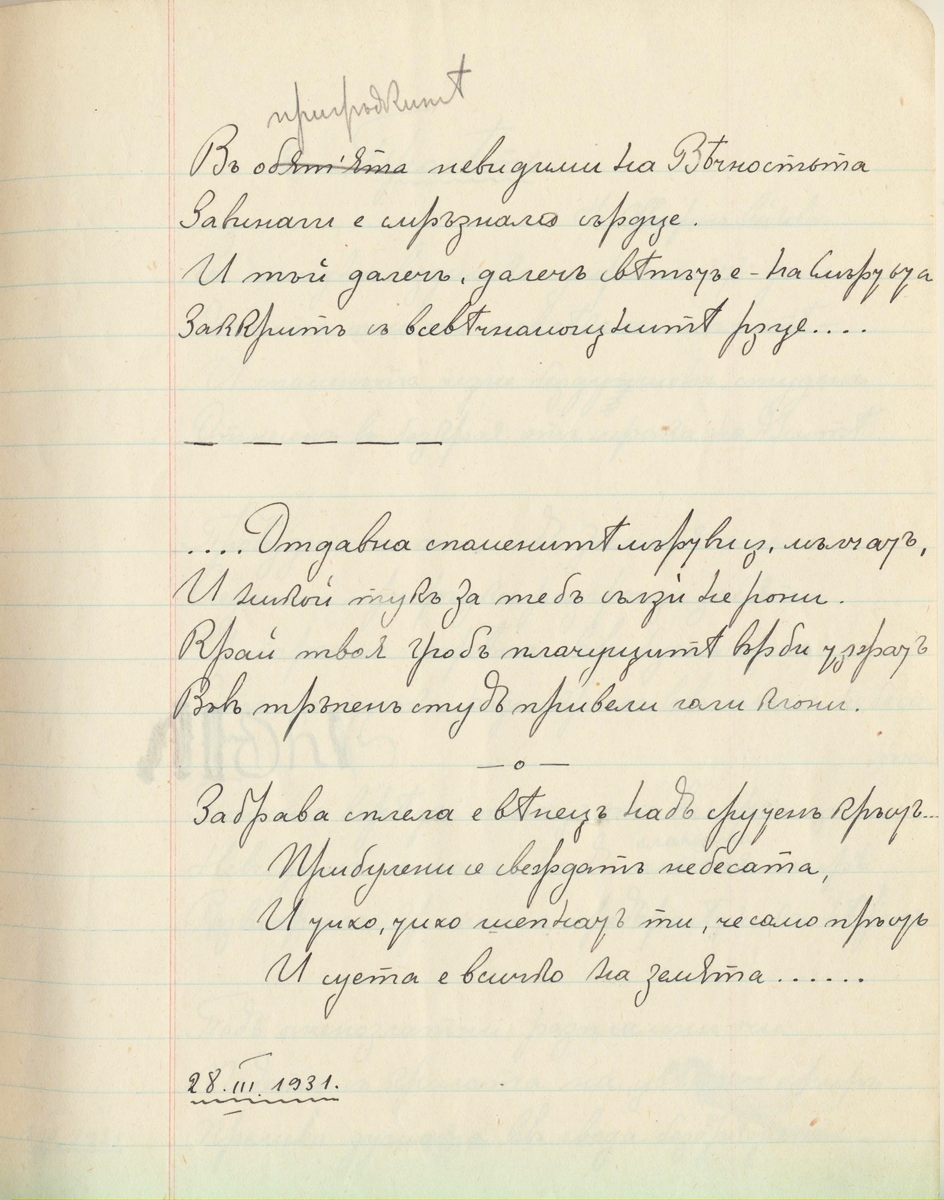 пригръдкитѣ
Въ обятʼята невидими на Вѣчностьта
Завинаги е смръзнало сърдце.
И той далечъ, далечъ свѣтътъ е – на смъртьта
Закритъ съ всевѣчнамощнитѣ рѫце....
— — — — —
....Отдавна спаменитѣ мъртвец, мълчатъ,
И никой тукъ за тебъ сълзи не рони.
Край твоя гробъ плачущитѣ върби трѣпятъ
Въвъ тръпенъ студъ привели голи клони.
—о—
Забрава сплела е вѣнецъ надъ срученъ кръстъ...
Прибулени се свеждатъ небесата,
И тихо, тихо шепнатъ ти, че само пръсть
И суета е всичко на земята......
28.III.1931.